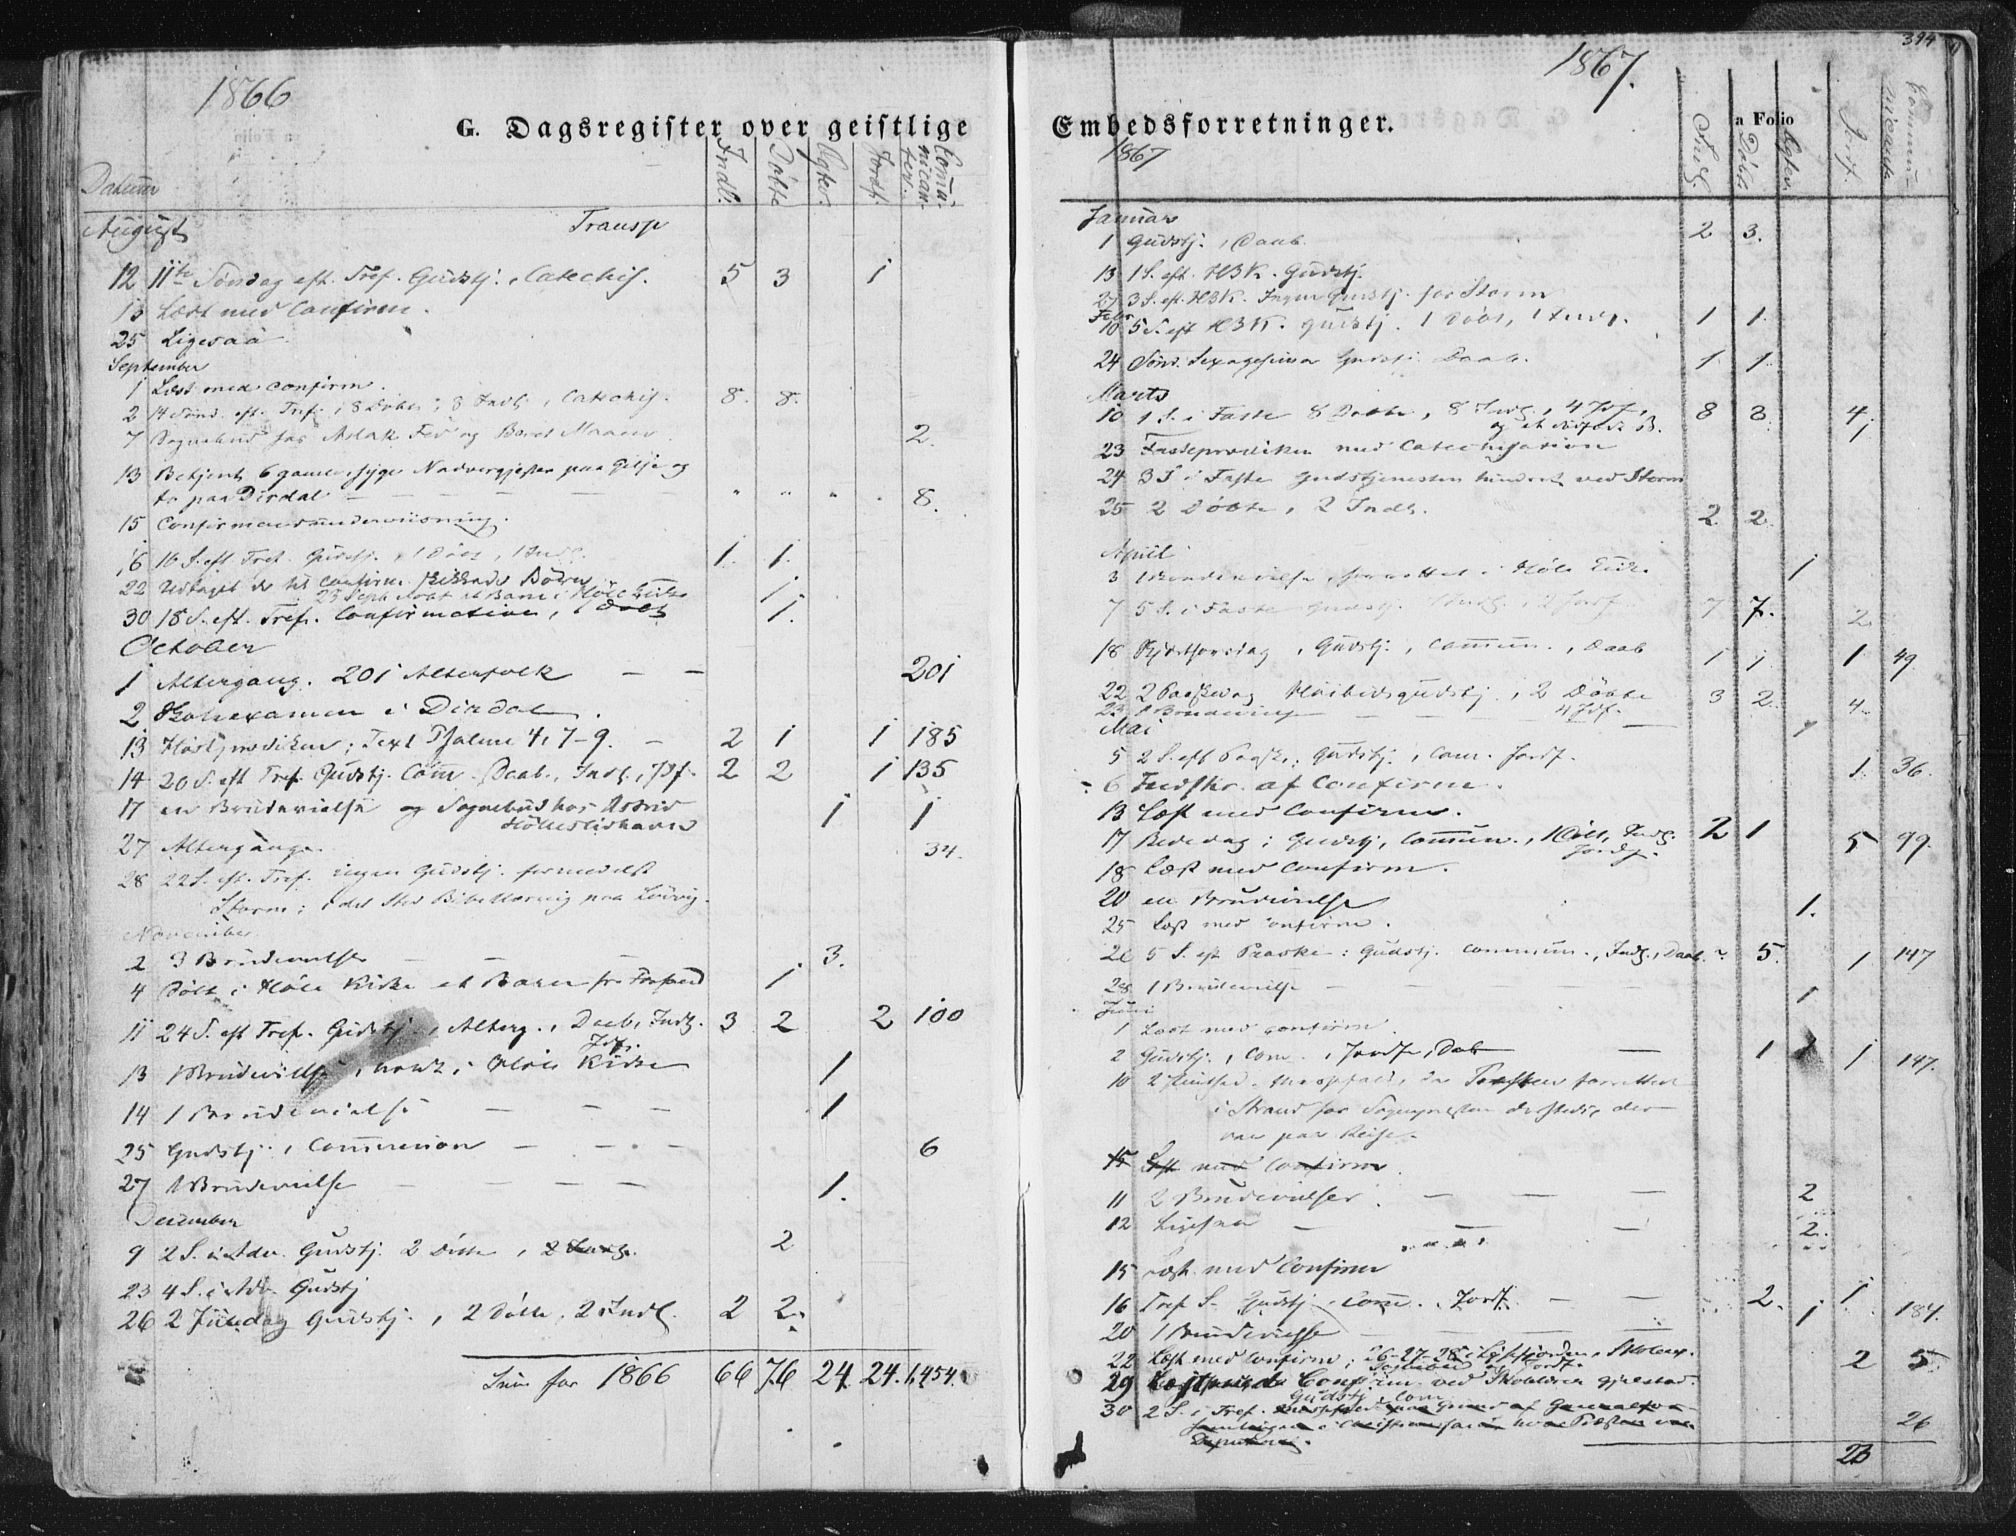 1866
G. Dagsregister over geistlige
Datum
Indl. Døbte Ægtev. Jordf. Comunicanter.
August Transp
12 11te Søndag eft. Tref. Gudstj., Catechis. 5 3 1
13 Læst med Confirm.
25 Ligesaa
September
1 Læst med Confirm.
2 14 Sønd. eft. Tref., 8 Døbte, 8 Indl., Catechis. 8. 8.
7 Sognebud hos Aslak og Beret 2.
13 Betjent 6 gamle, syge Nadvergjester paa Gilje og
to paa Dirdal — — — — — " " " . 8.
15 Confirmandunderviisning.
16 16 S. eft. Tref. Gudstj., 1 Døbt, 1 Indl. 1. 1.
22 Udtaget de til Confirm. Børn
23 Sept. Døbt et Barn i Høle Kirke 1.
30 18 S. eft. Tref. Confirmation, 1 Døbt 1.
October
1 Altergang. 201 Alterfolk — — 201
2 Skoleexamen i Dirdal.
13 Høstprædiken; Text Psalme 4, 7-9. — 2 1 1 185
14 20 S. eft Tref. Gudstj. Com. Daab., Indl., Jdf. 2 2 1 135
17 en Brudevielse og Sognebud hos Astrid 1 1
27 Altergange. 34.
28 22 S. eft. Tref. ingen Gudstj. formedelst
Storm; i det Sted Bibellæsning paa
November
2 3 Brudevielser — — — . 3.
4 Døbt i Høle Kirke et Barn fra 1
11 24 S. eft Tref. Gudstj., Alterg., Daab, Indl. 3 2 2 100
Jdf.
13 1 Brudevielse, i Høle Kirke 1
14 1 Brudevielse — — — 1
25 Gudstj., Communion — — . — 6
27 1 Brudevielse — — — — 1.
December
9 2 S. i Adv. Gudstj. 2 Døbte, 2 Indl. 2
23 4 S. i Adv. Gudstj
26 2 Juledag Gudstj., 2 Døbte, 2 Indl. 2 2.
Sum for 1866 66 76 24. 24. 1,454.
394
1867.
Embedsforretninger.
a Folio
1867
Indl. Døbt. Ægtev. Jordf. Communicante
Januar
1 Gudstj., Daab. 2 3.
13 1 S. eft. H3K. Gudstj.
27 3 S. eft. H3K. Ingen Gudstj. for Storm
Febr
10 5 S. eft H3K. Gudstj. 1 Døbt, 1 Indl. 1 1.
24 Sønd. Sexagesima Gudstj. Daab. 1. 1.
Marts
10 1 S. i Faste 8 Døbte, 8 Indl., 4 Jdf, 8 8. 4.
og et 1
23 Fasteprædiken med Catechisation
24 3 S i Faste Gudstjenesten hindret ved Storm
25 2 Døbte, 2 Indl. 2 2.
April
3 1 Brudevielse, forrettet i Høle Kirke 1
7 5 S. i Faste Gudstj. Indl., 2 Jordf. 7 7. 2
18 Skjærthorsdag, Gudstj., Commun., Daab 1 1. 1 49
22 2 Paaskedag Høitidsgudstj., 2 Døbte 3 2. 4.
23 1 Brudevielse — — 4 Jdf. — 1
Mai
5 2 S. eft Paask., Gudstj., Com. Jordf. 1. 36.
6 Indskr. af Confirm.
13 Læst med Confirm.
17 Bededag; Gudstj., Commun., 1 Døbt, Indl. 2 1 5 99.
Jordf.
18 Læst med Confirm.
20 en Brudevielse 1.
25 Læst med Confirm.
26 5 S. eft Paaske: Gudstj. Commun., Indl., Daab. 5. 1 147
28 1 Brudevielse — — — — 1
Juni
1 Læst med Confirm.
2 Gudstj., Com., Jordf., Dab — 1 1 147.
10 2 Pintsed. Messefald, da Præsten forrettede
i Strand for Sognepræsten dersteds, der
var paa Reise.
15 Læst med Confirm.
11 2 Brudevielser — — — 2
12 Ligesaa — — — 2.
15 Læst med Confirm
16 Tref S. Gudstj. Com., Jordf. — — 2. 1 184.
20 1 Brudevielse — — — — 1
22 Læst med Confirm; 26-27-28 i Lysefjorden, Skoleex. 2 5.
Sognebud og Jordf.
29 Læst med Confirm. ved Skolelærer Gjilestad.
Gudstj. Com
30 2 S. i Tref. Messefald paa Grund af 26
Samlingen i hvor Præsten var
26